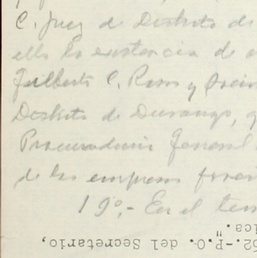 C. Juez de Distrito de
ella la existencia de
Gilberto C. Ramos y
Distrito de Durango,
Procuraduria General
de las empresas
19º.- En el
62.-P.O. del Secretario,
ica.